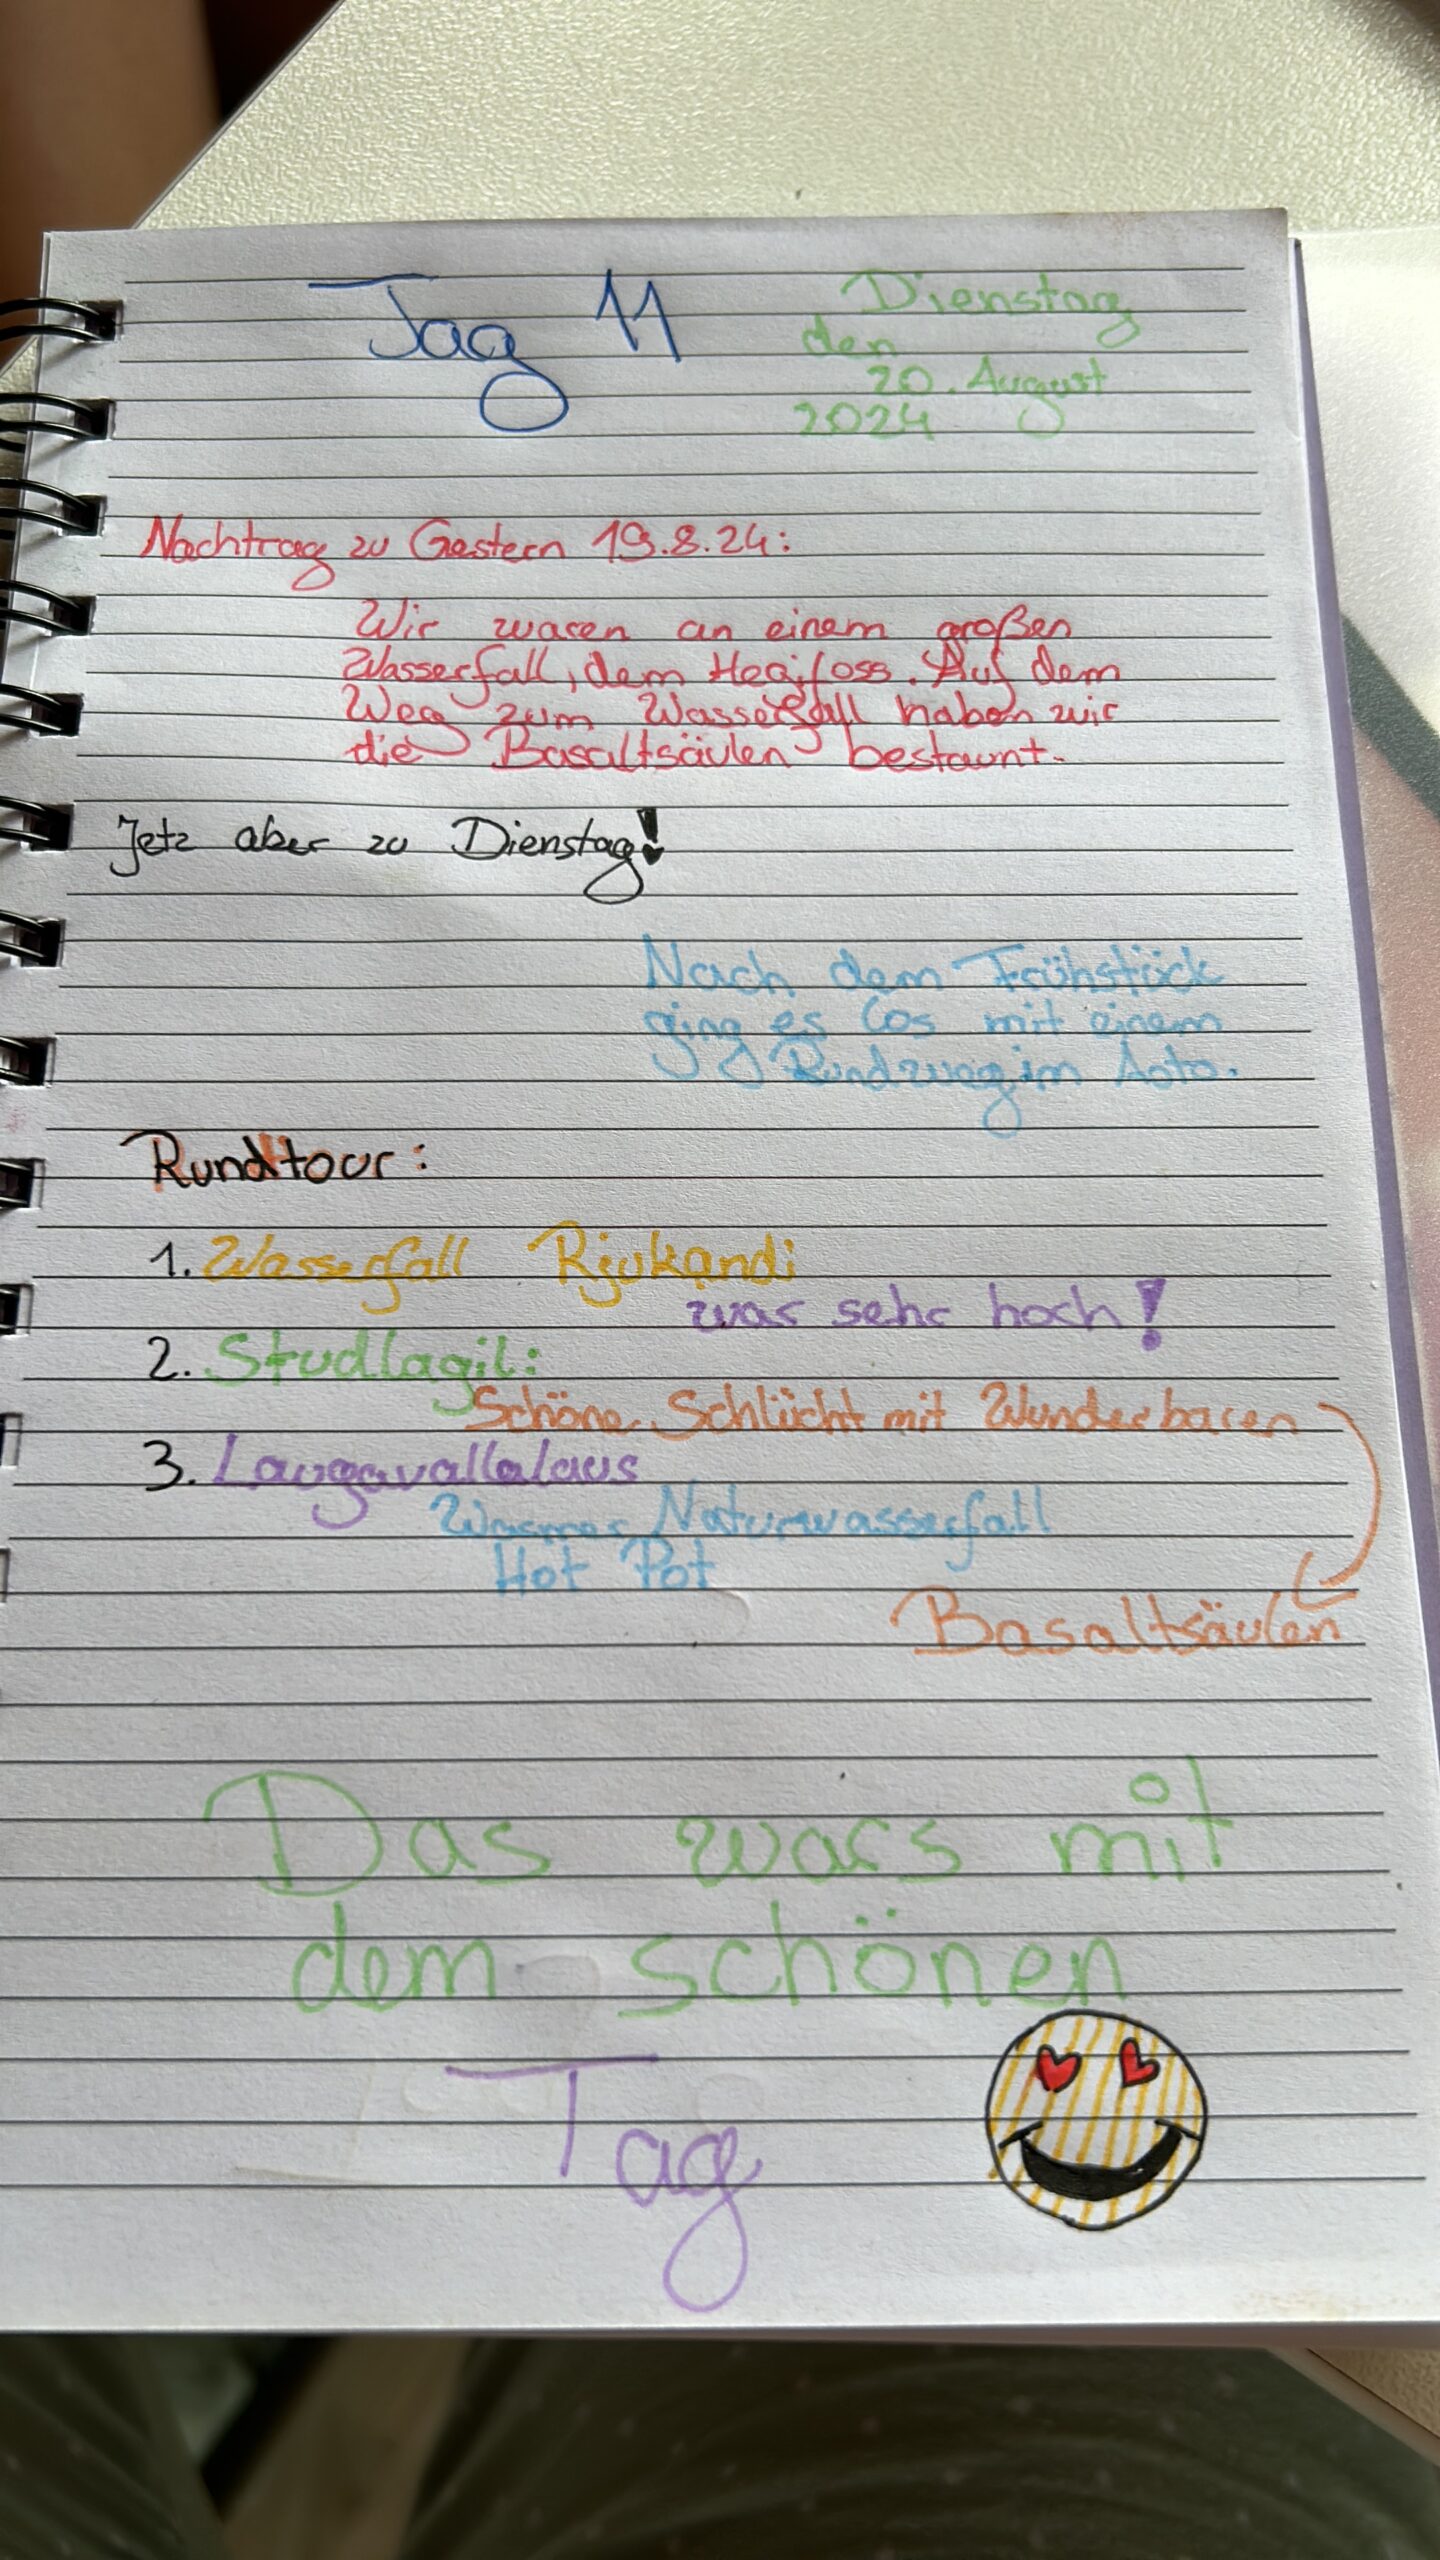 Tag 11
Dienstag
den
20. August
2024
Nachtrag zu Gestern 19.8.24:
Wir waren an einem großen
Wasserfall, dem Hegifoss. Auf dem
Weg zum Wasserfall haben wir
die Basaltsäulen bestaunt.
Jetz aber zu Dienstag!
Nach dem Frühstück
ging es los mit einem
Rundweg im Auto.
Rundtour:
1. Wasserfall Rjukandi
was sehr hoch!
2. Studlagil:
Schöne Schlücht mit Wunderbaren
3. Laugavallalaus
Warmer Naturwasserfall
Hot Pot
Basaltsäulen
Das wars mit
dem schönen
Tag